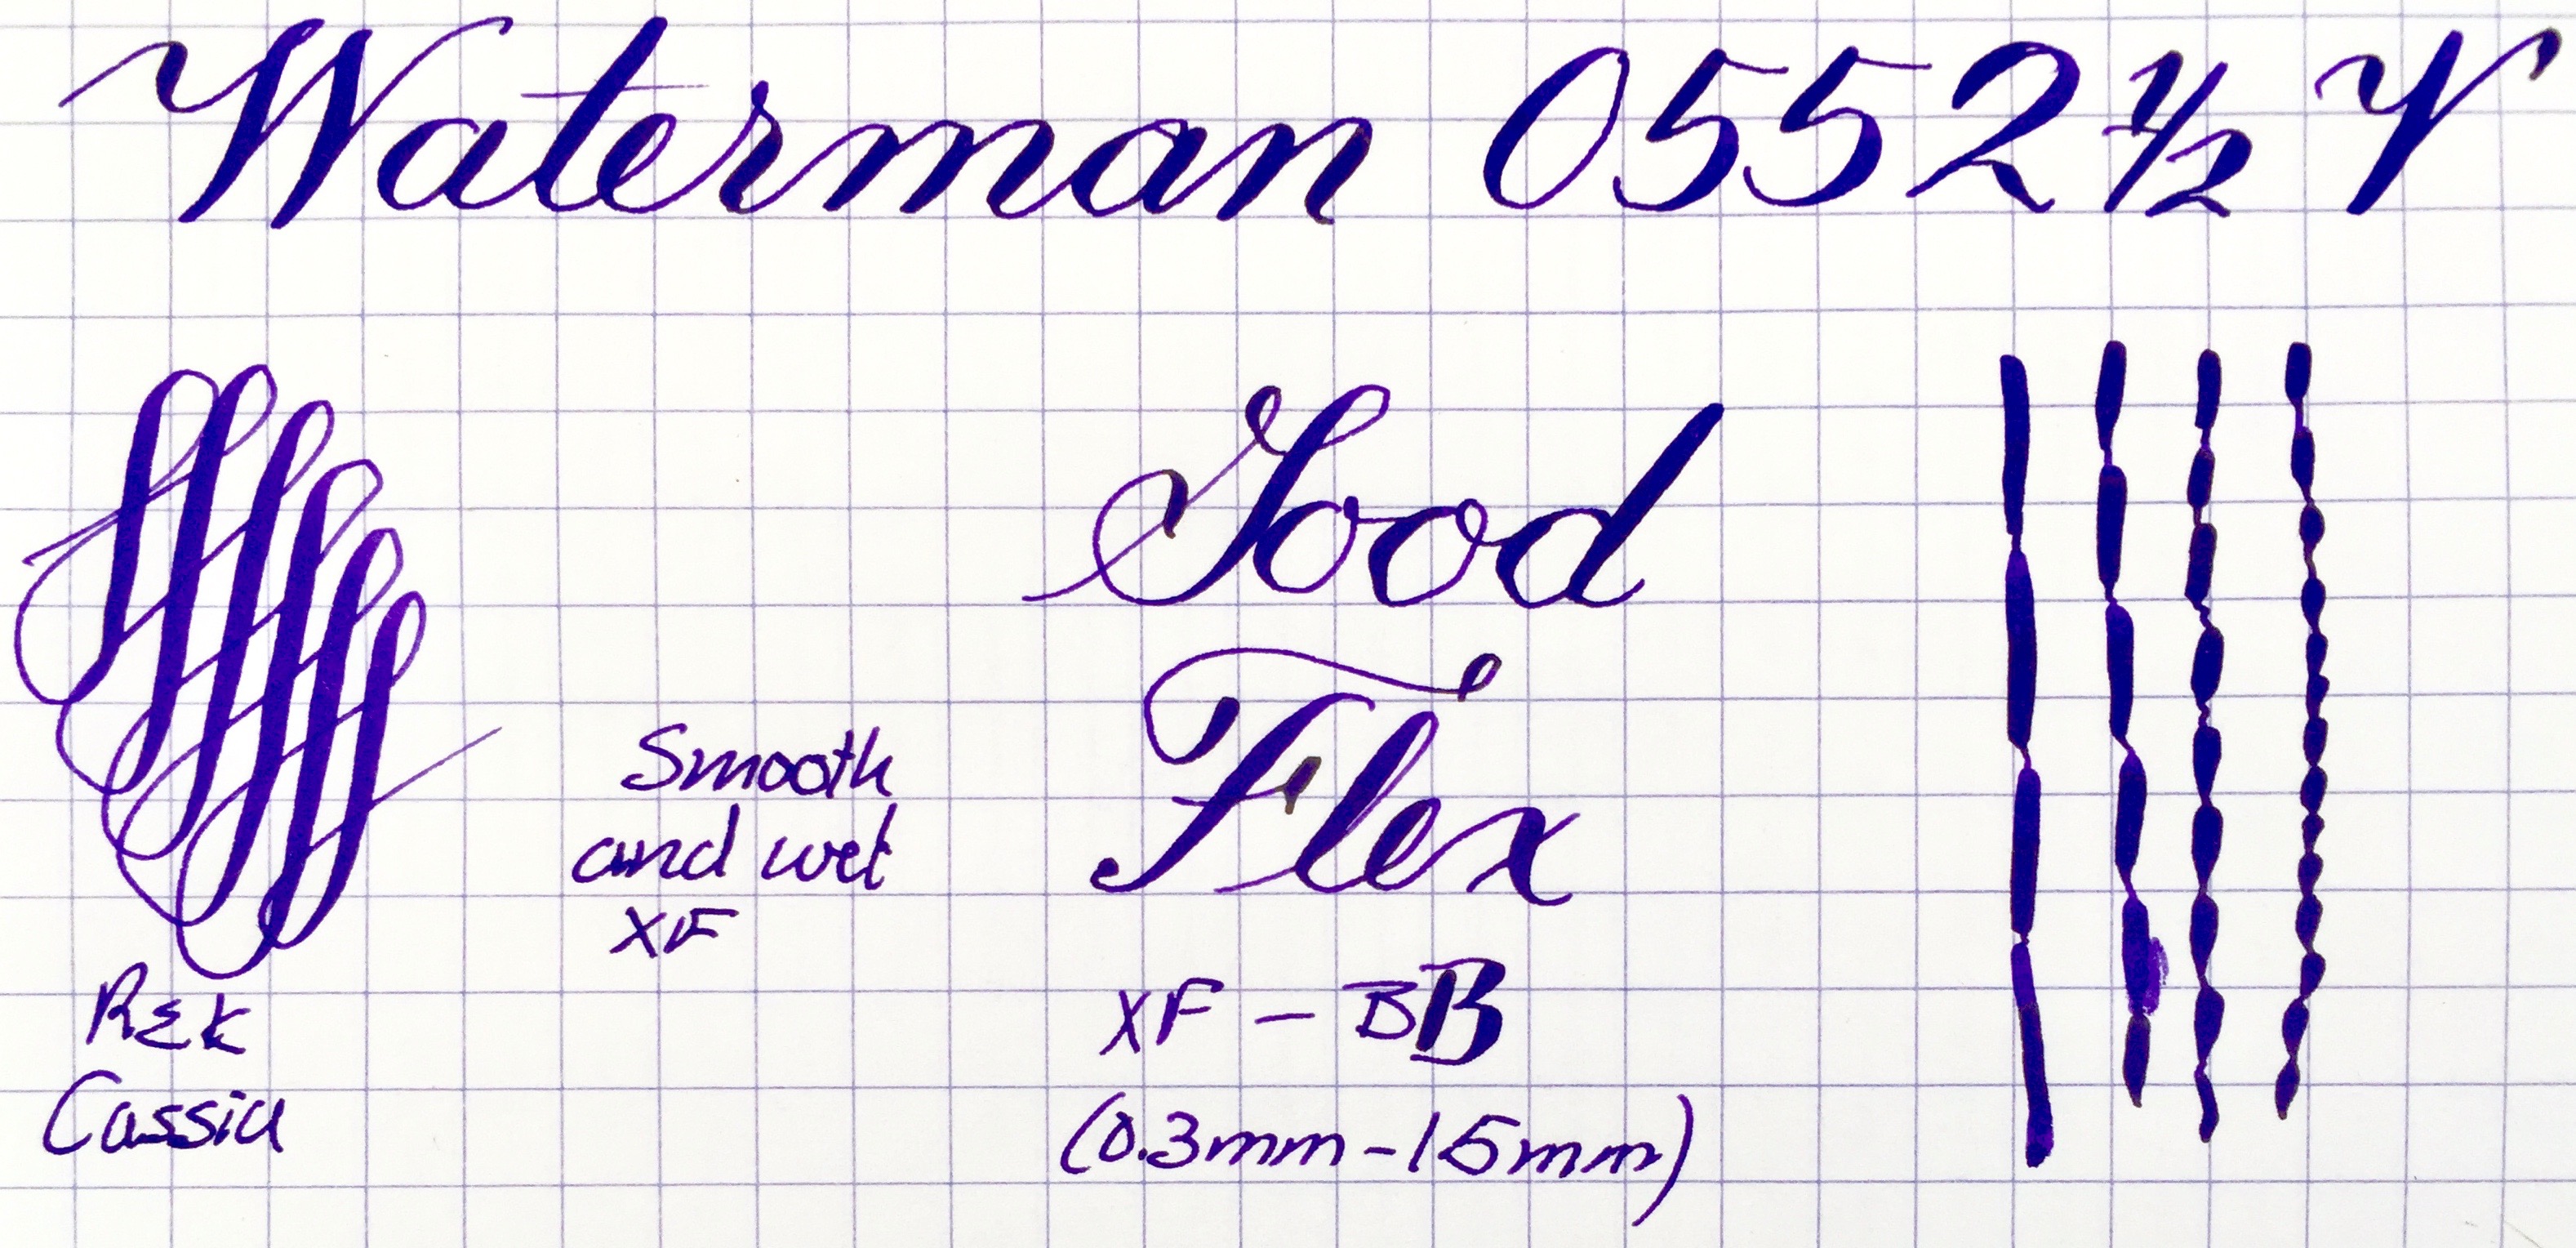 Waterman 0552½ V
Good
Flex
Smooth
and wet
XF
R&K
Cassia
XF - BB
(0.3mm-1.5mm)